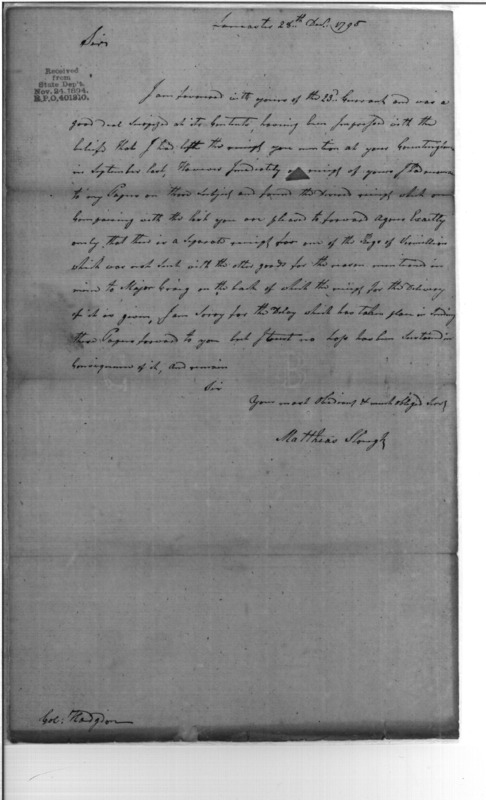 Lancaster 28th Dec. 1795
Sir
Received
from
State Dep't.
Nov. 24, 1894.
R.P.O. 401310.
I am favoured with yours of the 23d. Current and was a
good deal Surprized at its Contents, having been Impressed with the
belief that I had left the receipts you mention at your
in September last, However Imediately on receipt of yours I
to my Papers on those Subjects and found the receipts which on
Comparing with the list you are pleased to forward agree Exactly
only that there is a Separate receipt for one of the Kegs of Vermillion
which was not Sent with the other goods for the reason mentioned in
mine to Major Craig on the back of which the receipt for the Delivery
of it is given, I am Sorry for the Delay which has taken place in Sending
these Papers forward to you but I trust no loss has been Sustained in
Consequence of it, and remain
Sir
Your most Obedient & most obliged Servt
Matthias Slough
Col. Hodgdon